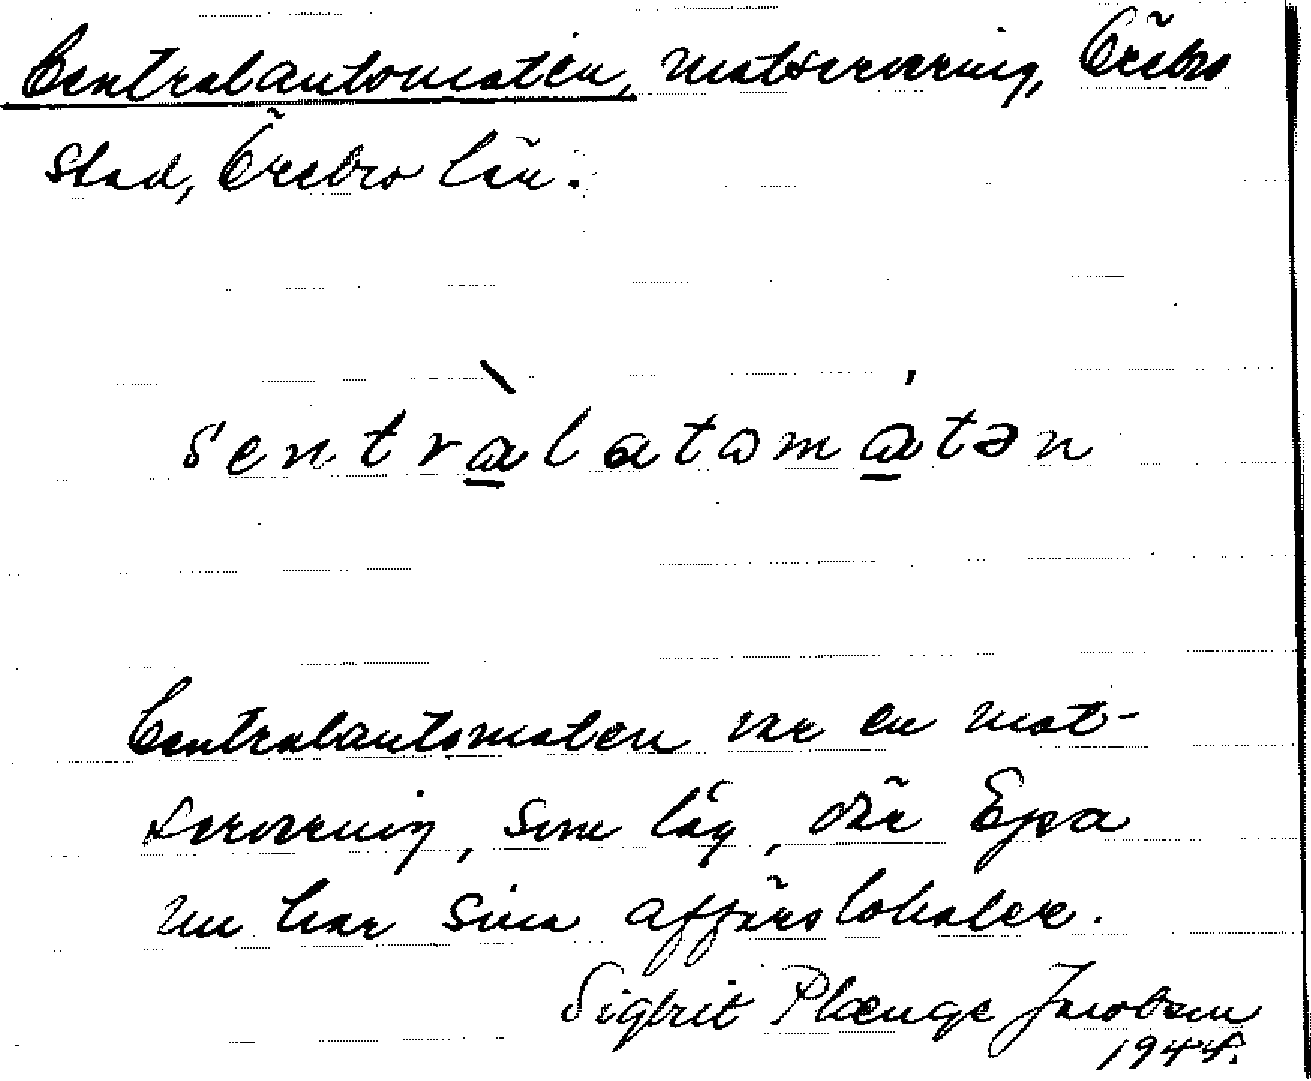 Centralautomaten, matservering, Örebro
stad, Örebro län.
sentràlatωmátən
Centralautomaten var en mat-
servering, som låg, där Epa
nu har sina affärslokaler.
Sigfrit Plænge Jacobson
1944.